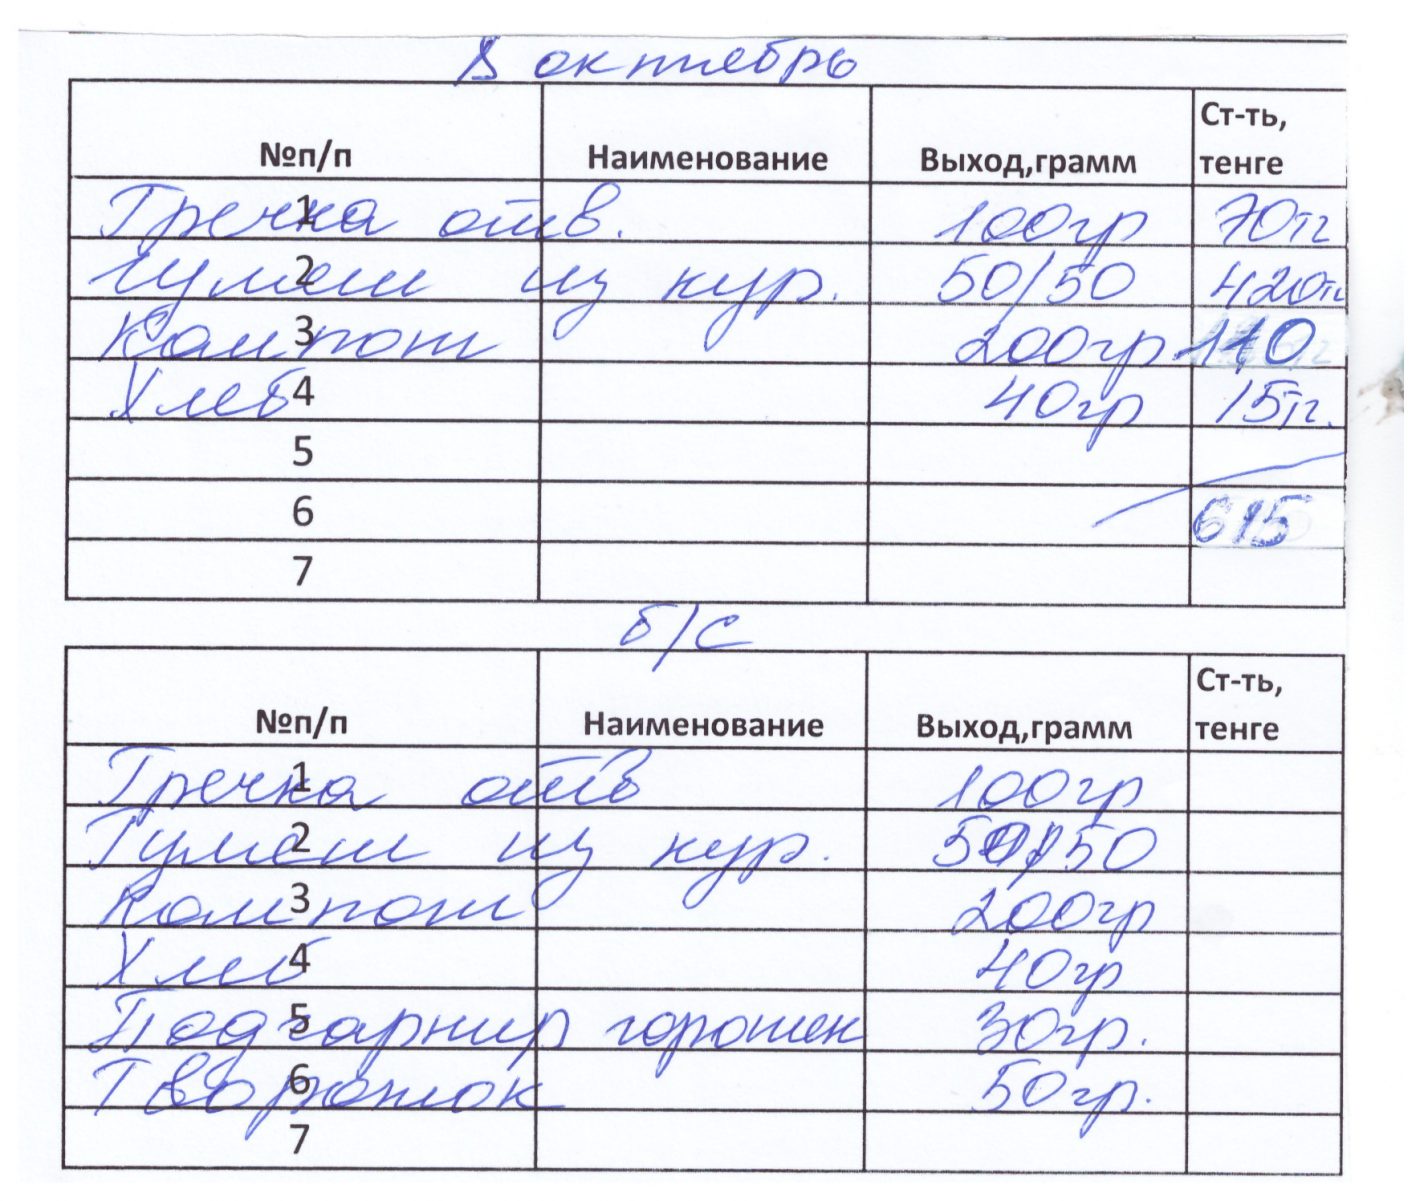 8 октябрь
№п/п Наименование Выход,грамм Ст-ть, тенге
1 Гречка отв. 100гр 70тг
2 Гуляш из кур. 50/50 420тг
3 Компот 200гр 110
4 Хлеб 40гр 15тг.
5
6 615
7
б/с
№п/п Наименование Выход,грамм Ст-ть, тенге
1 Гречка отв 100гр
2 Гуляш из кур. 50/50
3 Компот 200гр
4 Хлеб 40гр
5 Подгарнир горошек 30гр.
6 Творожок 50гр.
7